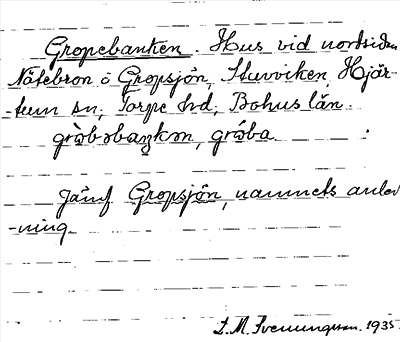 Gropebanken. Hus vid nordsidan
Nätebron ö Gropsjön, Stuvviken, Hjär-
-tum sn, Torpe hd, Bohus län.
grö̀bəbaŋkən, grö̀ba
Jämf Gropsjön, namnets anled
-ning
S. M. Svenungsson. 1935.